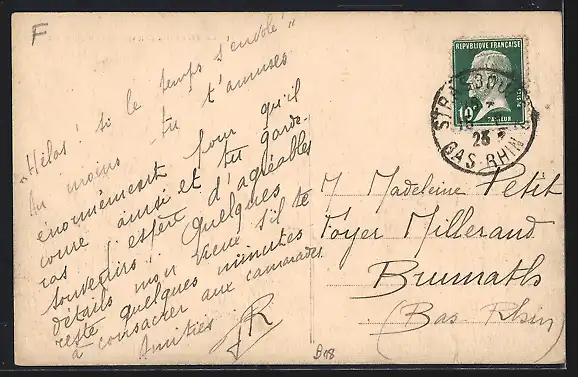 F
"Hélas! si le temps s'envole!"
Au moins tu t'amuses
énormément pour qu'il
coure ainsi et tu garde-
ras j'espère d'agréables
souvenirs. Quelques
détails mon vieux s'il te
reste quelques minutes
à consacrer aux camarades.
Amitiés
JR
REPUBLIQUE FRANÇAISE
POSTES
10c
PASTEUR
STRASBOURG
23
BAS-RHIN
M Madeleine Petit
Foyer Millerand
Brumath
(Bas Rhin)
B18